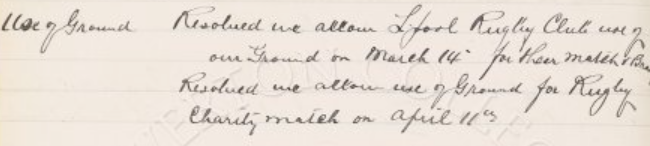 Use of Ground Resolved we allow L'pool Rugby Club use of
our Ground on March 14th for their match v
Resolved we allow use of Ground for Rugby
Charity match on April 11th